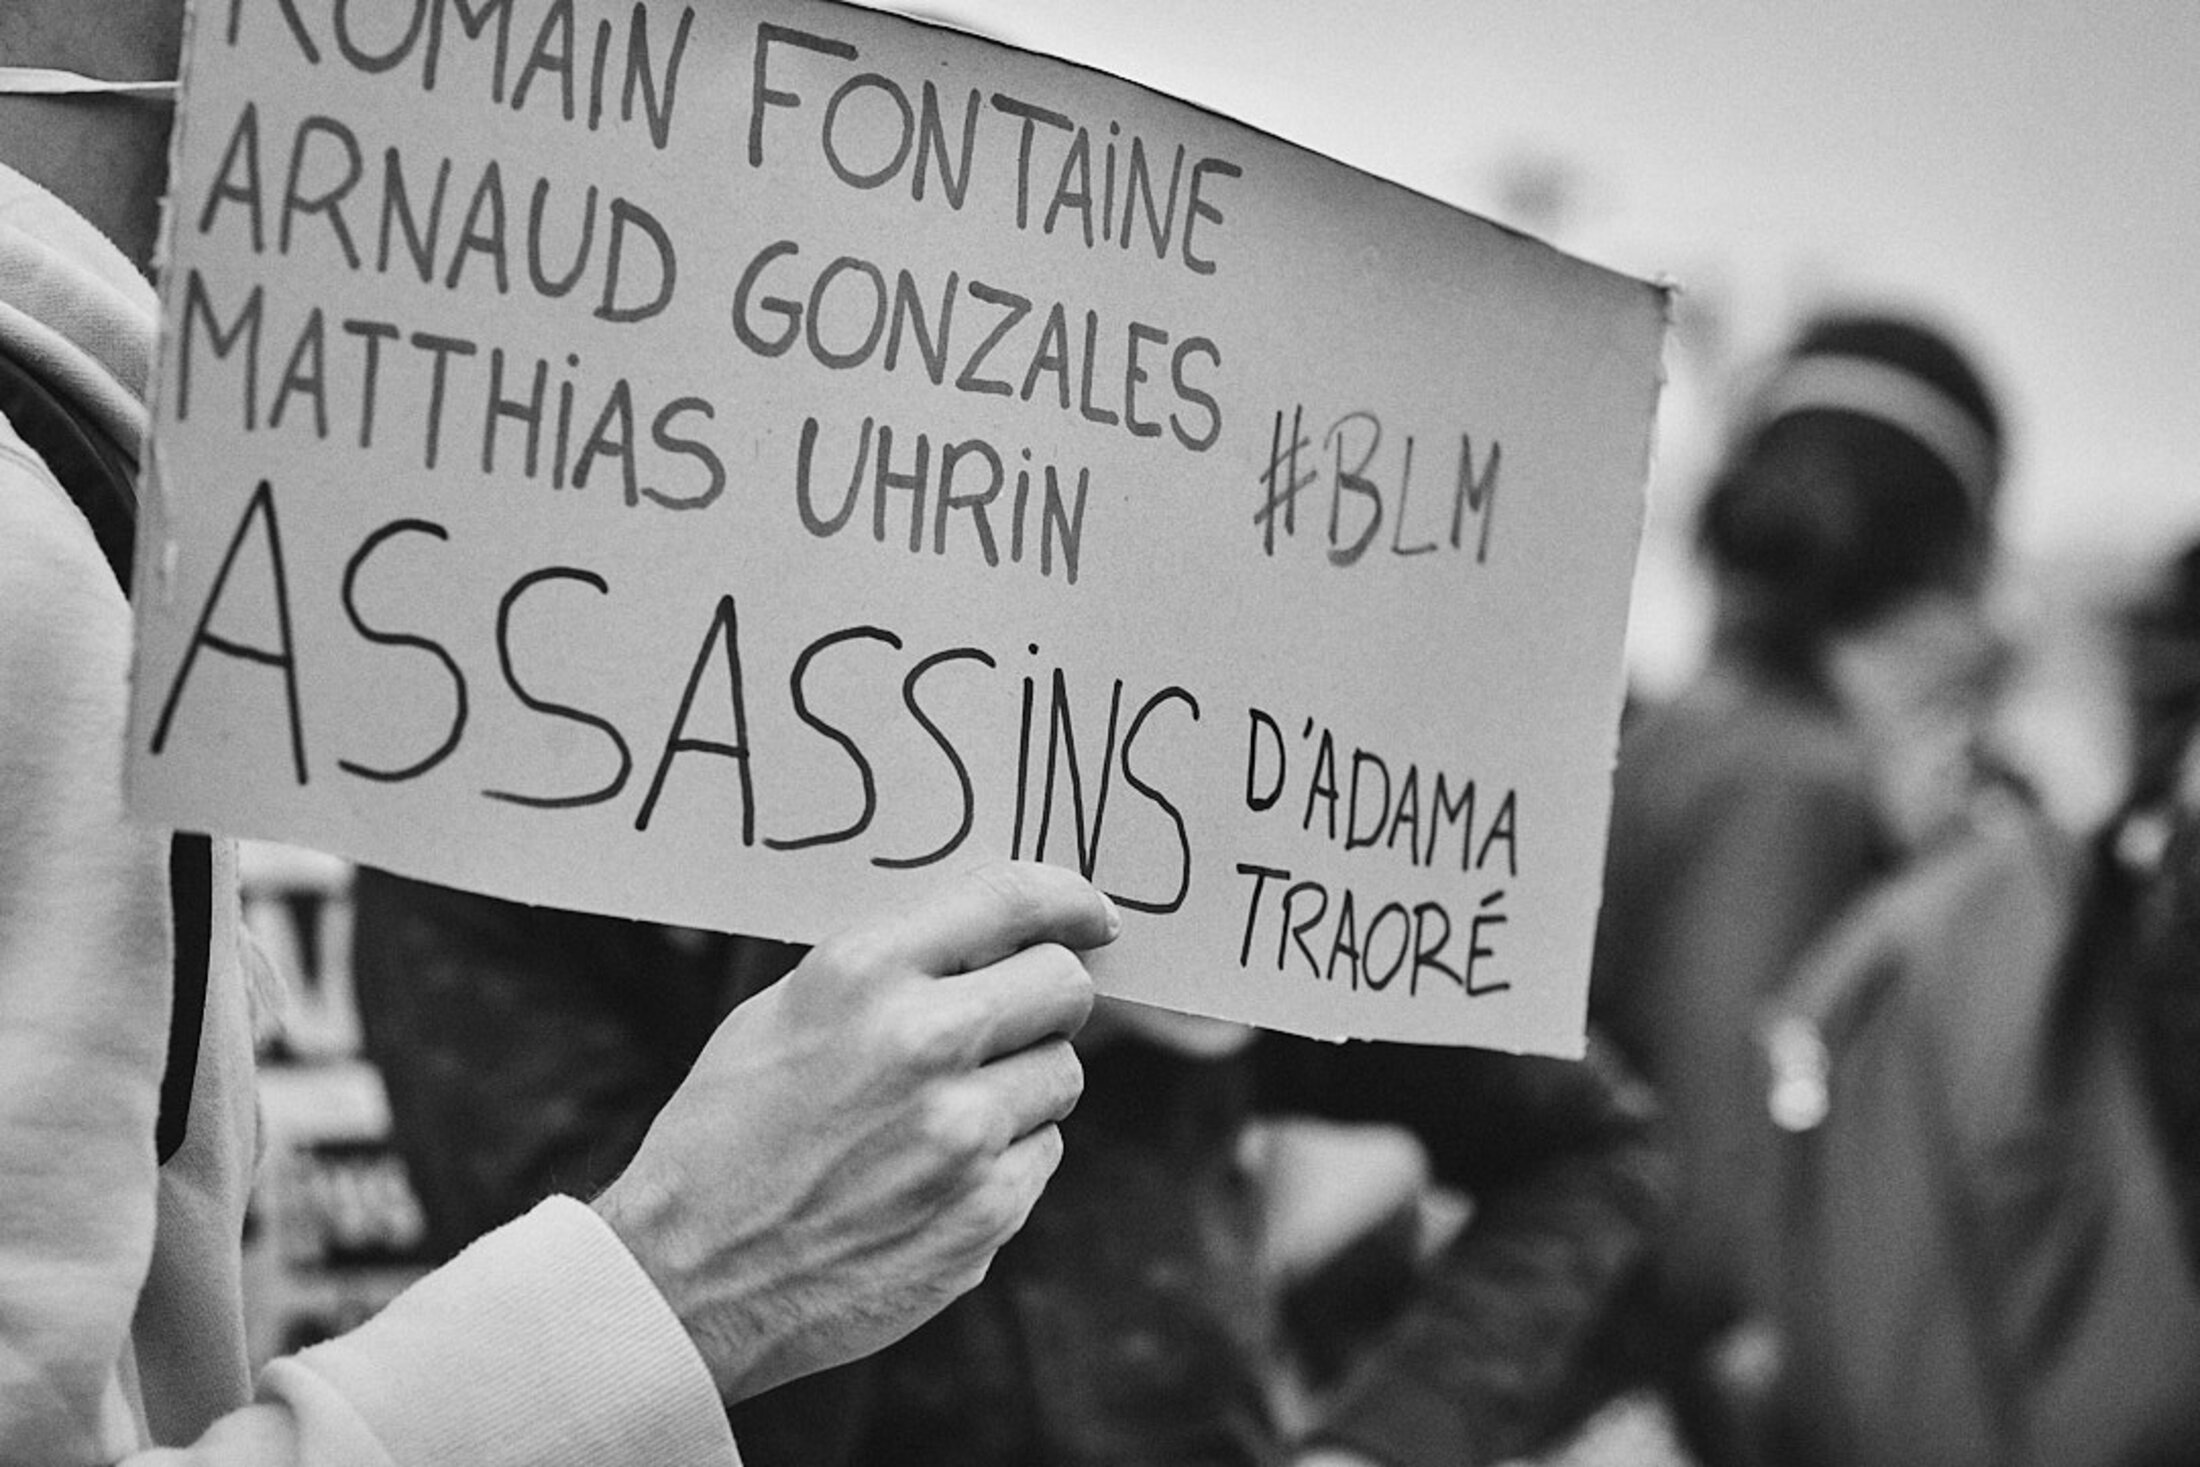 ROMAIN FONTAINE
ARNAUD GONZALES
MATTHIAS UHRIN
#BLM
ASSASSINS
D'ADAMA
TRAORÉ